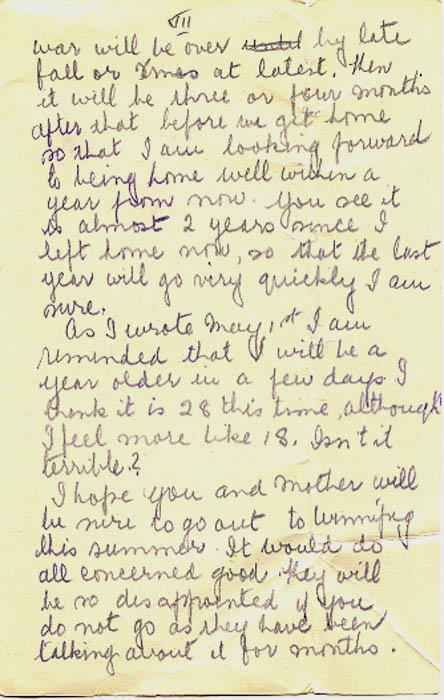 VII
war will be over until by late
fall or Xmas at latest. Then
it will be three or four months
after that before we get home
so that I am looking forward
to being home well within a
year from now. You see it
is almost 2 years since I
left home now, so that the last
year will go very quickly I am
sure.
As I wrote May 1st I am
reminded that I will be a
year older in a few days I
think it is 28 this time, although
I feel more like 18. Isn't it
terrible?
I hope you and mother will
be sure to go out to Winnipeg
this summer. It would do
all concerned good. They will
be so disappointed if you
do not go as they have been
talking about it for months.